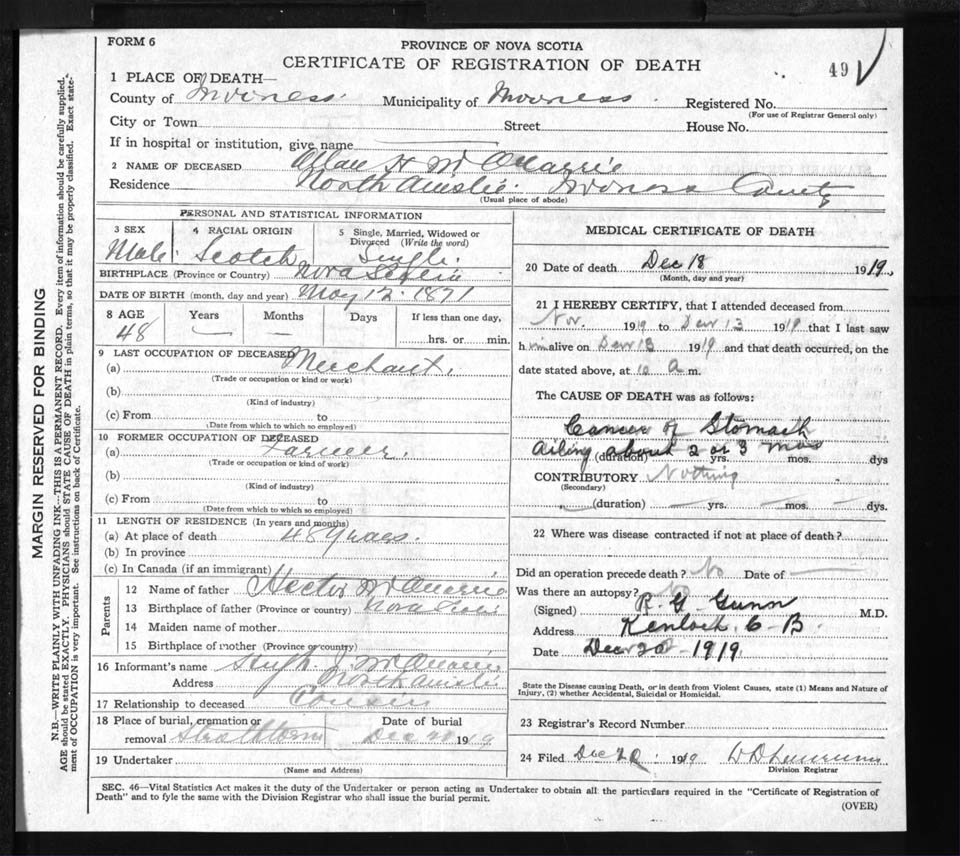 FORM 6
PROVINCE OF NOVA SCOTIA
CERTIFICATE OF REGISTRATION OF DEATH
49
1 PLACE OF DEATH—
County of Inverness. Municipality of Inverness. Registered No.
(For use of Registrar General only)
City or Town Street House No.
If in hospital or institution, give name
2 NAME OF DECEASED Allan H McQuarrie
Residence North Ainslie. Inverness County
(Usual place of abode)
PERSONAL AND STATISTICAL INFORMATION
3 SEX 4 RACIAL ORIGIN 5 Single, Married, Widowed or Divorced (Write the word)
Male. Scotch Single.
BIRTHPLACE (Province or Country) Nova Scotia
DATE OF BIRTH (month, day and year) May 12. 1871
8 AGE Years Months Days If less than one day,
48 — — hrs. or min.
9 LAST OCCUPATION OF DECEASED
(a) Merchant.
(Trade or occupation or kind of work)
(b)
(Kind of industry)
(c) From to
(Date from which to which so employed)
10 FORMER OCCUPATION OF DECEASED
(a) Farmer.
(Trade or occupation or kind of work)
(b)
(Kind of industry)
(c) From to
(Date from which to which so employed)
11 LENGTH OF RESIDENCE (In years and months)
(a) At place of death 48 years.
(b) In province
(c) In Canada (if an immigrant)
Parents
12 Name of father Hector McQuarrie
13 Birthplace of father (Province or country) Nova Scotia
14 Maiden name of mother
15 Birthplace of mother (Province or country)
16 Informant's name Hugh J McQuarrie
Address North Ainslie
17 Relationship to deceased Cousin
18 Place of burial, cremation or removal Strathlorne Date of burial Dec 20 1919
19 Undertaker
(Name and Address)
MEDICAL CERTIFICATE OF DEATH
20 Date of death Dec 18 1919
(Month, day and year)
21 I HEREBY CERTIFY, that I attended deceased from
Nov. 1919 to Dec 13 1919 that I last saw
him alive on Dec 13 1919 and that death occurred, on the
date stated above, at 10 a m.
The CAUSE OF DEATH was as follows:
Cancer of Stomach
Ailing about 2 or 3 mos
(duration) yrs. mos. dys
CONTRIBUTORY Nothing
(Secondary)
(duration) — yrs. — mos. — dys.
22 Where was disease contracted if not at place of death?
Did an operation precede death? No Date of —
Was there an autopsy? No
(Signed) R. G. Gunn M.D.
Address Kenloch C-B.
Date Dec 20 - 1919.
State the Disease causing Death, or in death from Violent Causes, state (1) Means and Nature of
Injury, (2) whether Accidental, Suicidal or Homicidal.
23 Registrar's Record Number
24 Filed Dec 20. 1919
Division Registrar
SEC. 46—Vital Statistics Act makes it the duty of the Undertaker or person acting as Undertaker to obtain all the particulars required in the "Certificate of Registration of
Death" and to fyle the same with the Division Registrar who shall issue the burial permit.
(OVER)
MARGIN RESERVED FOR BINDING
N.B.—WRITE PLAINLY WITH UNFADING INK—THIS IS A PERMANENT RECORD. Every item of information should be carefully supplied.
AGE should be stated EXACTLY. PHYSICIANS should STATE CAUSE OF DEATH in plain terms, so that it may be properly classified. Exact state-
ment of OCCUPATION is very important. See instructions on back of Certificate.